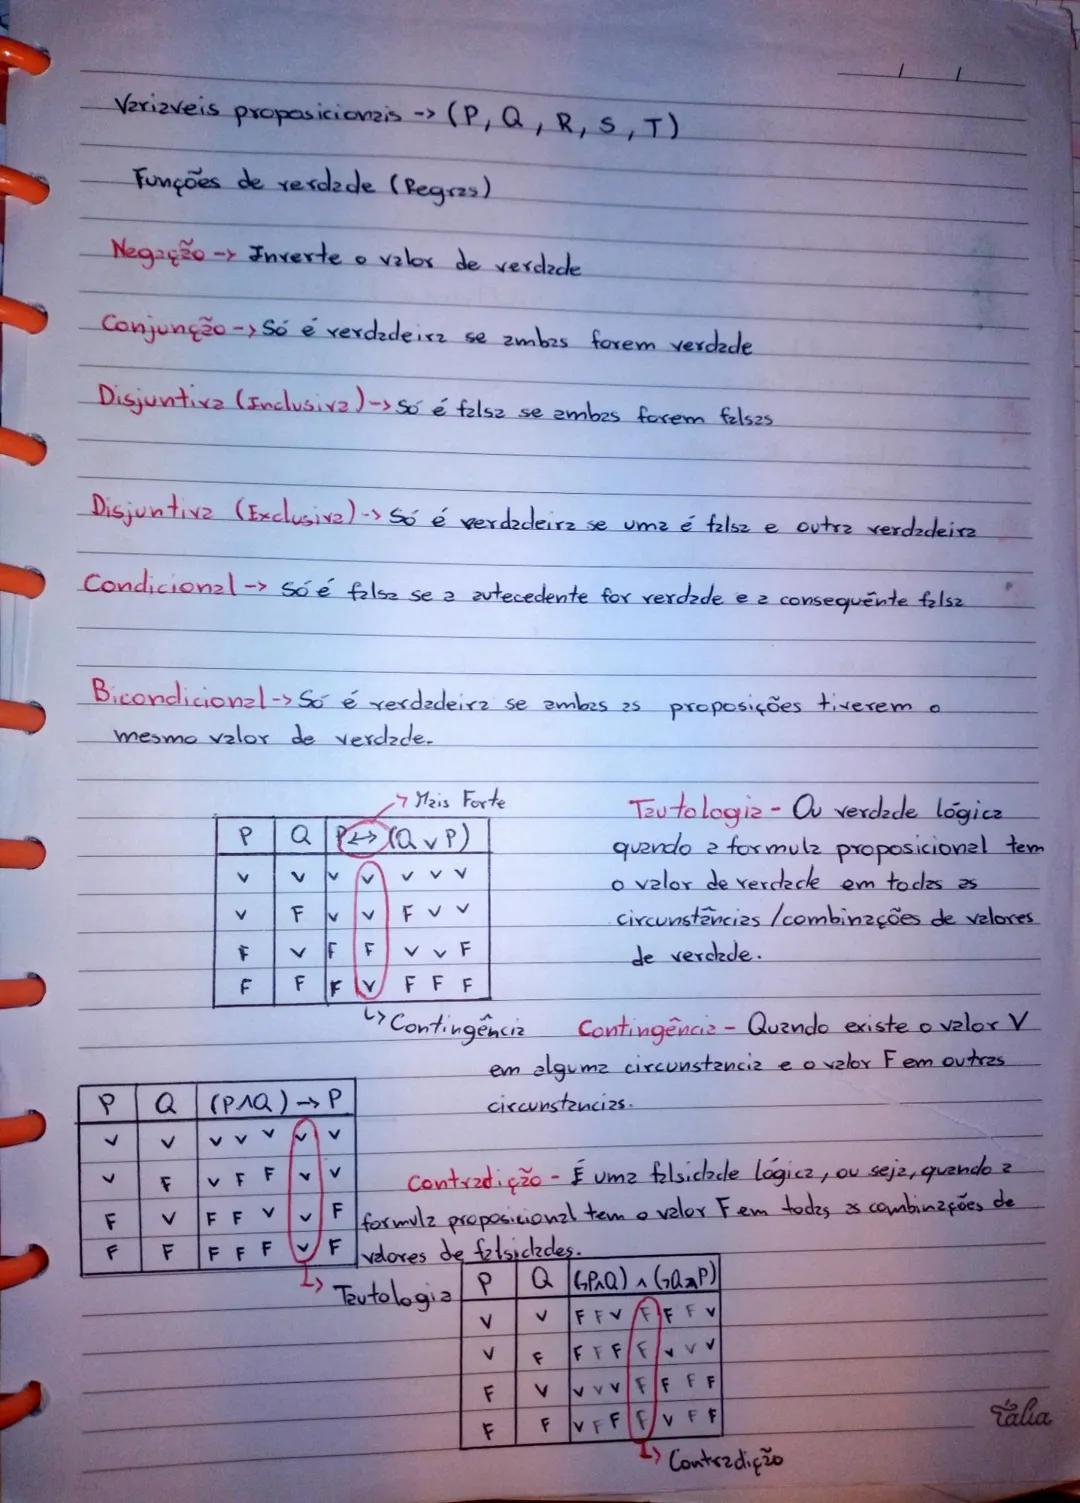 / /
Variaveis proposicionais -> (P, Q, R, S, T)
Funções de verdade (Regras)
Negação -> Inverte o valor de verdade
Conjunção -> Só é verdadeira se ambas forem verdade
Disjuntiva (Inclusiva) -> Só é falsa se ambas forem falsas
Disjuntiva (Exclusiva) -> Só é verdadeira se uma é falsa e outra verdadeira
Condicional -> Só é falsa se a autecedente for verdade e a consequênte falsa
Bicondicional -> Só é verdadeira se ambas as proposições tiverem o
mesmo valor de verdade.
-> Mais Forte
P Q P ↔ (Q ∨ P)
V V V V V V V
V F V V F V V
F V F F V V F
F F F V F F F
↳ Contingência
Tautologia - Ou verdade lógica
quando a formula proposicional tem
o valor de verdade em todas as
circunstâncias / combinações de valores
de verdade.
Contingência - Quando existe o valor V
em alguma circunstancia e o valor F em outras
circunstancias.
P Q (P∧Q) → P
V V V V V V V
V F V F F V V
F V F F V V F
F F F F F V F
↳ Tautologia
Contradição - É uma falsidade lógica, ou seja, quando a
formula proposicional tem o valor F em todas as combinações de
valores de falsidades.
P Q (¬P∧Q) ∧ (¬Q∧P)
V V F F V F F F V
V F F F F F V V V
F V V V V F F F F
F F V F F F V F F
↳ Contradição
Talia